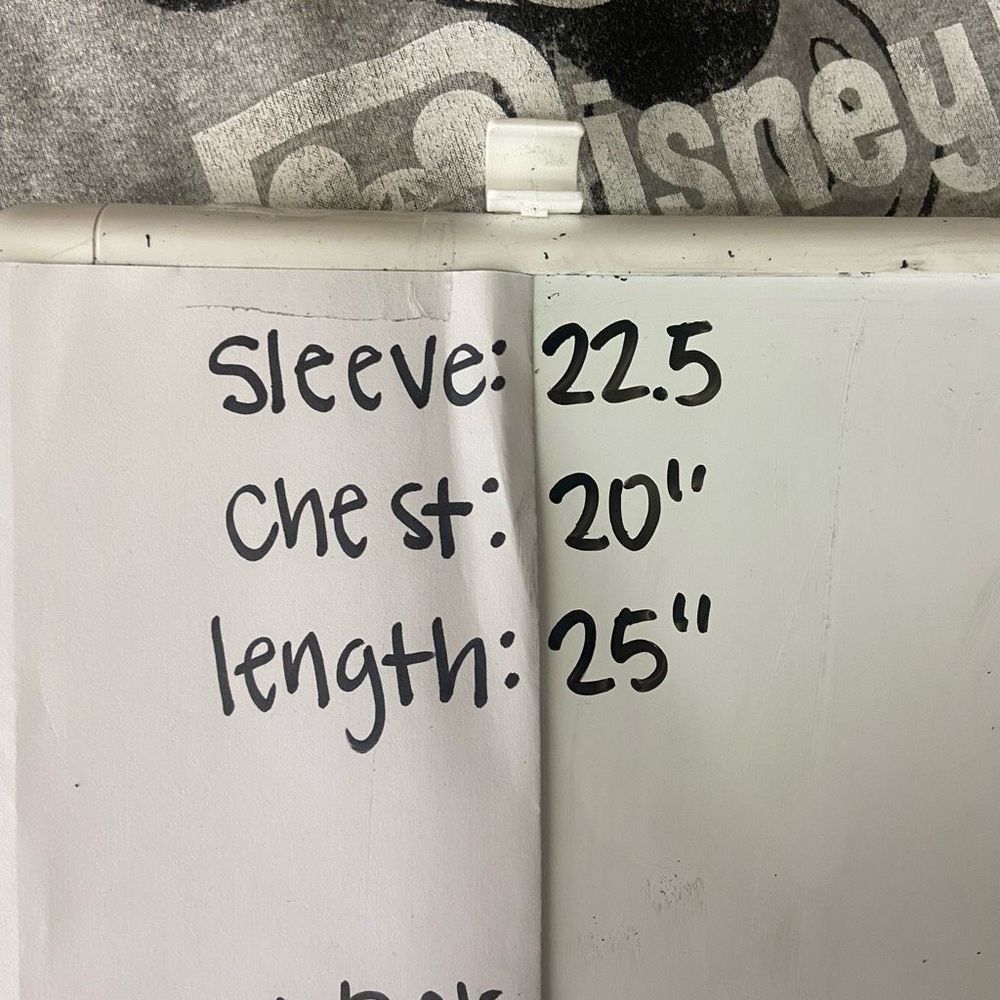 Disney
Sleeve: 22.5
Chest: 20"
length: 25"